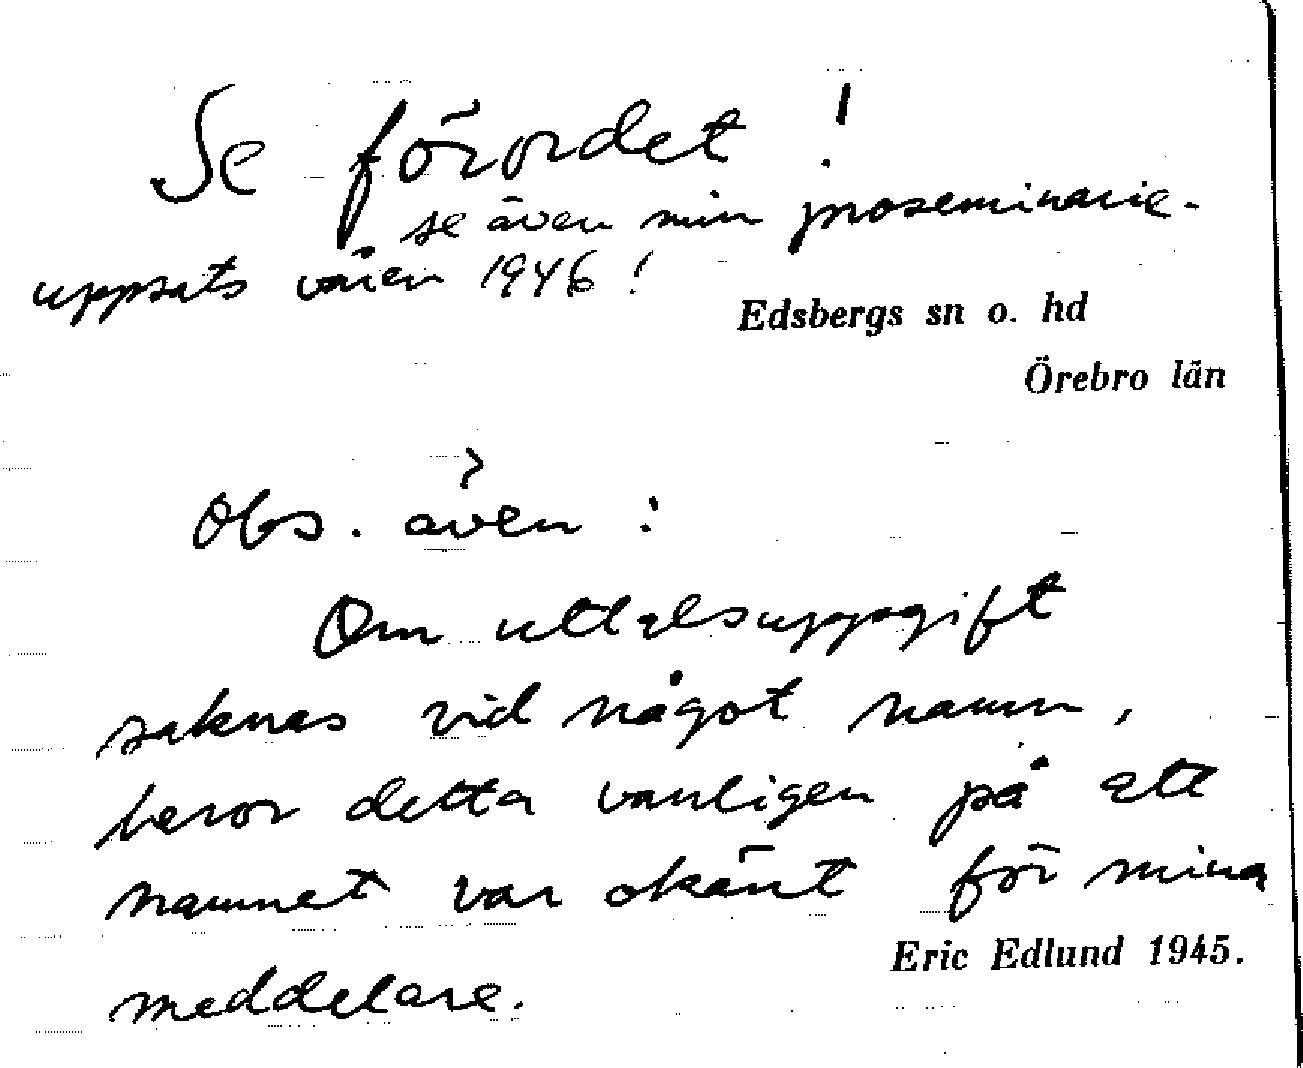 Se förordet!
se även min proseminarie-
uppsats våren 1946!
Edsbergs sn o. hd
Örebro län
Obs. även:
Om uttalsuppgift
saknas vid något namn,
beror detta vanligen på att
namnet var okänt för mina
Eric Edlund 1945.
meddelare.